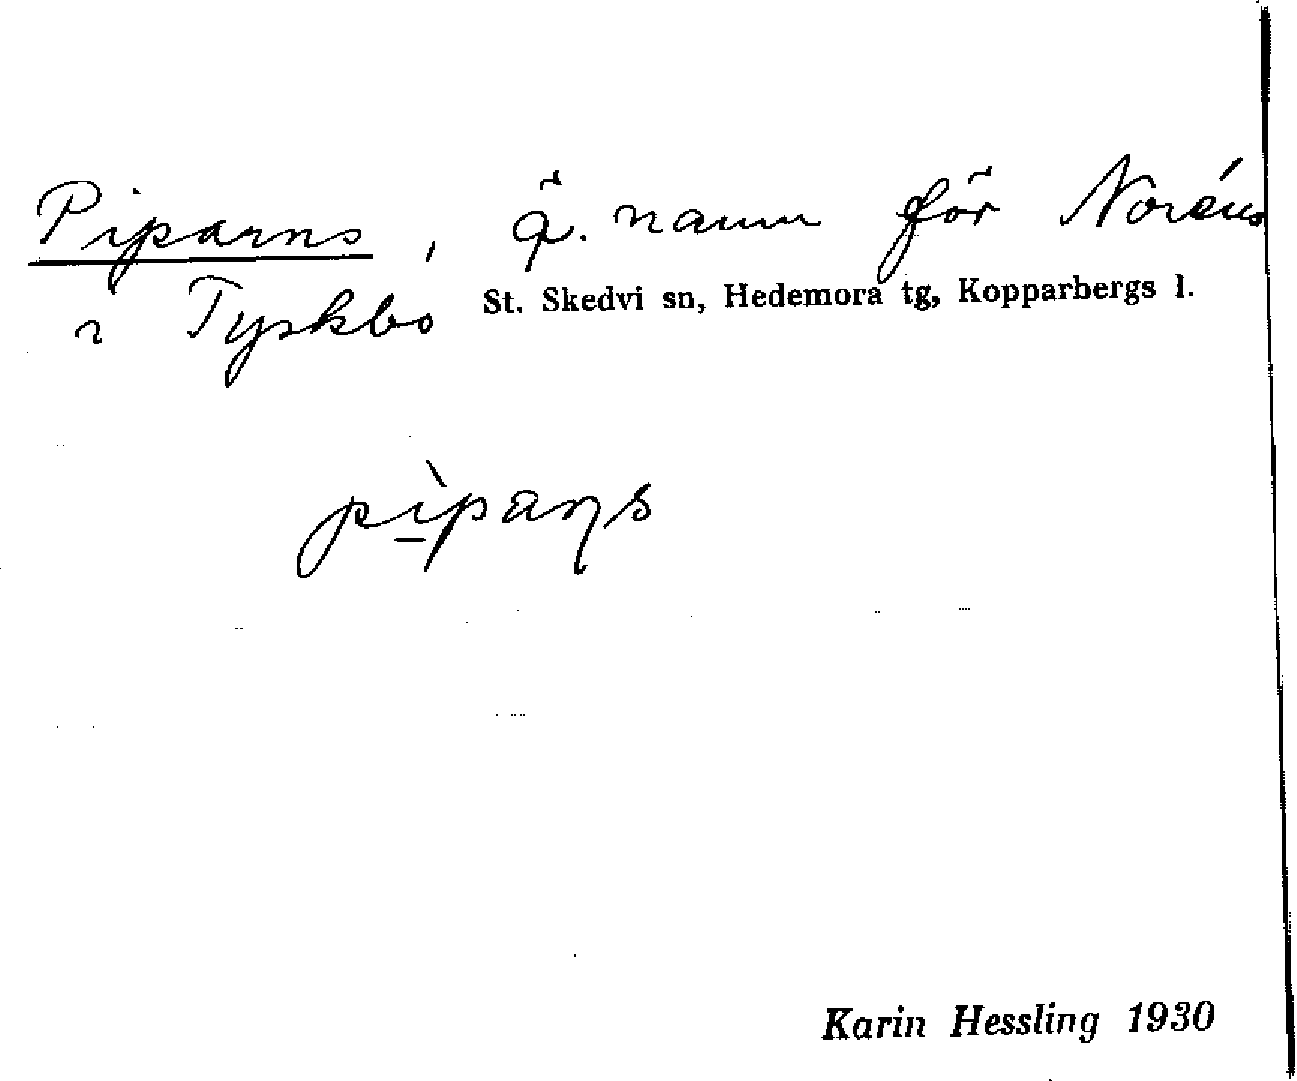 Piparns, ä. namn för Noréns
i Tyskbo St. Skedvi sn, Hedemora tg, Kopparbergs l.
pìpaṇs
Karin Hessling 1930